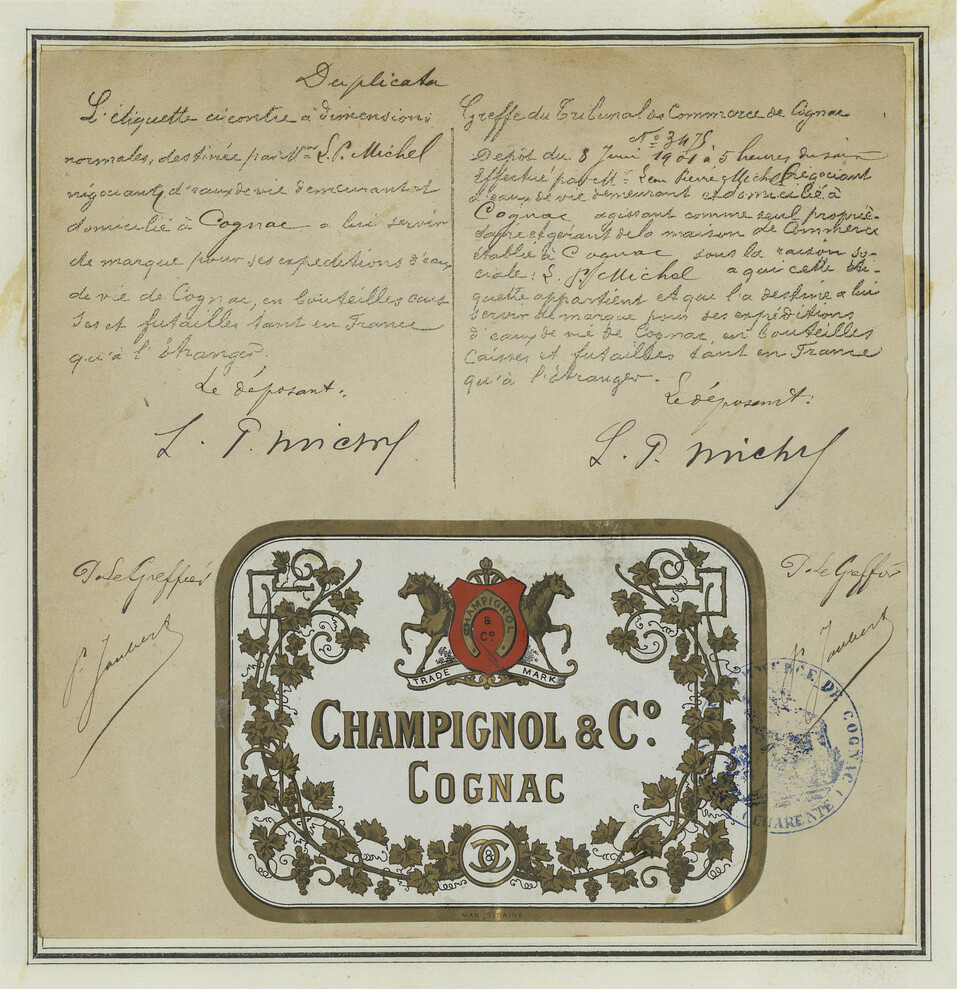 Duplicata
L'étiquette ci contre à dimensions
normales, destinée par Mr L. P. Michel
négociant, d'eaux de vie demeurant et
domicilié à Cognac a lui servir
de marque pour ses expéditions d'eaux
de vie de Cognac, en bouteilles cais
ses et futailles tant en France
qu'à l'étranger.
Le déposant.
L. P. Michel
Greffe du Tribunal de Commerce de Cognac
No 3475
Dépôt du 8 Juin 1901 à 5 heures du soir
Effectué par Mr Léon Pierre Michel Négociant
d'eaux de vie demeurant et domicilié à
Cognac agissant comme seul proprié-
taire et gérant de la maison de Commerce
établie à Cognac sous la raison so-
ciale: L. P. Michel a qui cette éti-
quette appartient et que l'a destiné a lui
servir de marque pour ses expéditions
d'eaux de vie de Cognac, en bouteilles
Caisses et futailles tant en France
qu'à l'étranger.
Le déposant:
L. P. Michel
Le Greffier
Joubert
Le Greffier
Joubert
CHAMPIGNOL
& Co
TRADE MARK
CHAMPIGNOL & Co.
COGNAC
&
COMMERCE DE COGNAC
(CHARENTE)